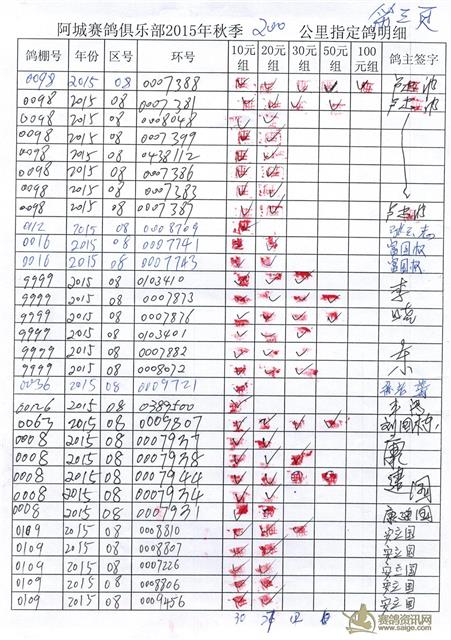 第三页
阿城赛鸽俱乐部2015年秋季 200 公里指定鸽明细
鸽棚号 年份 区号 环号 10元组 20元组 30元组 50元组 100元组 鸽主签字
0098 2015 08 0007388 ✓ ✓ ✓ ✓ ✓
0098 2015 08 0007381 ✓ ✓ ✓ ✓
0098 2015 08 0008048 ✓ ✓
0098 2015 08 0007399 ✓ ✓
0098 2015 08 0438112 ✓ ✓
0098 2015 08 0007386 ✓ ✓
0098 2015 08 0007383 ✓ ✓
0098 2015 08 0007387 ✓ ✓
0112 2015 08 0008709 ✓
0016 2015 08 0007741 ✓ ✓ 富国权
0016 2015 08 0007743 ✓ ✓ 富国权
9999 2015 08 0103410 ✓ ✓ ✓ 李
9999 2015 08 0007873 ✓ ✓ ✓ ✓
9999 2015 08 0007876 ✓ ✓ ✓ ✓ 晓
9999 2015 08 0103401 ✓ ✓ ✓
9999 2015 08 0007882 ✓ ✓ ✓ 东
9999 2015 08 0008072 ✓ ✓ ✓
0036 2015 08 0009721 ✓
00126 2015 08 0389500 ✓
0063 2015 08 0009807 ✓ ✓ ✓ ✓
0008 2015 08 0007937 ✓ ✓
0008 2015 08 0007938 ✓ ✓ ✓ 康
0008 2015 08 0007944 ✓ ✓ ✓ ✓ 建
0008 2015 08 0007934 ✓ ✓ 国
0008 2015 08 0007931 ✓ ✓ 康建国
0109 2015 08 0008810 ✓ ✓ ✓ 安立国
0109 2015 08 0008807 ✓ ✓ 安立国
0109 2015 08 0007226 ✓ ✓ 安立国
0109 2015 08 0008806 ✓ ✓ 安立国
0109 2015 08 0009456 ✓ ✓ 安立国
30
赛鸽资讯网
www.saige.com